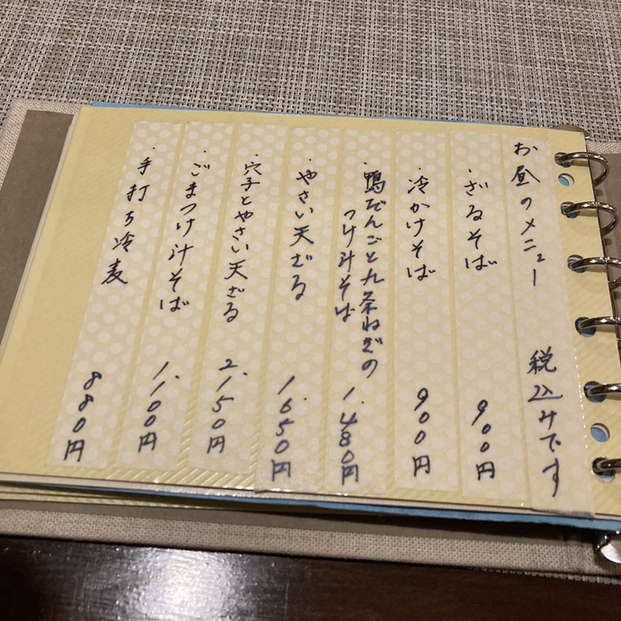 お昼のメニュー 税込みです
・ざるそば 900円
・冷かけそば 900円
・鴨だんごと九条ねぎの
つけ汁そば 1.480円
・やさい天ざる 1.650円
・穴子とやさい天ざる 2.150円
・ごまつけ汁そば 1.100円
・手打ち冷麦 880円